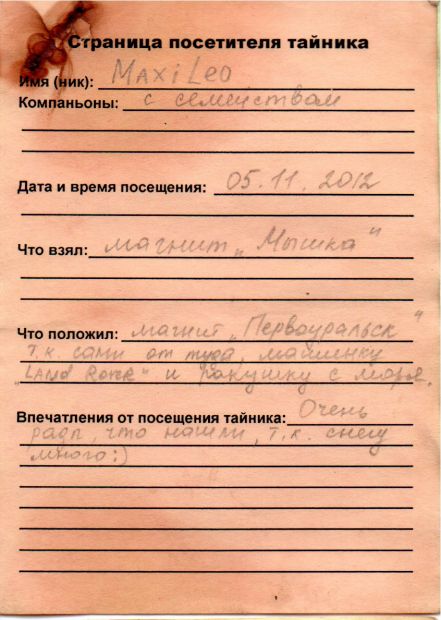 Страница посетителя тайника
Имя (ник): MaxiLeo
Компаньоны: с семейством
Дата и время посещения: 05.11.2012
Что взял: магнит „Мышка"
Что положил: магнит „Первоуральск"
т.к. сами от туда, машинку
„Land Rover" и ракушку с моря.
Впечатления от посещения тайника: Очень
рады, что нашли, т.к. снегу
много:)